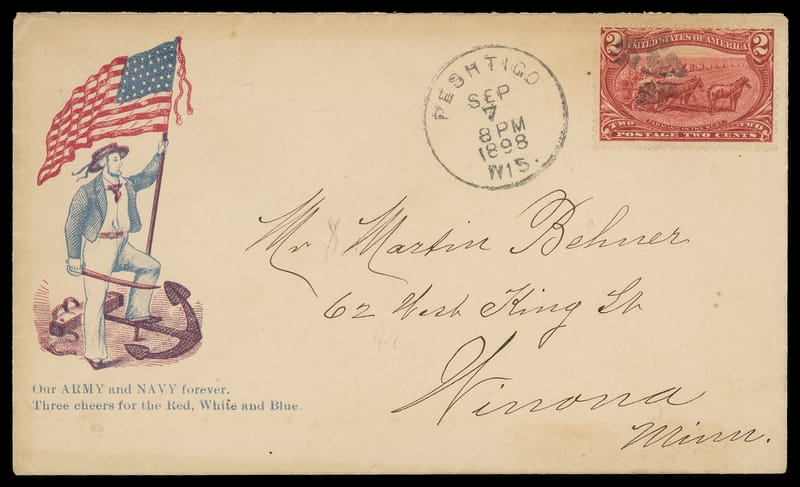 2 UNITED STATES OF AMERICA 2
TWO FARMING IN THE WEST TWO
POSTAGE TWO CENTS
PESHTIGO
SEP
7
8 PM
1898
WIS.
Mr Martin Behner
62 West King St
Winona
Minn.
Our ARMY and NAVY forever.
Three cheers for the Red, White and Blue.